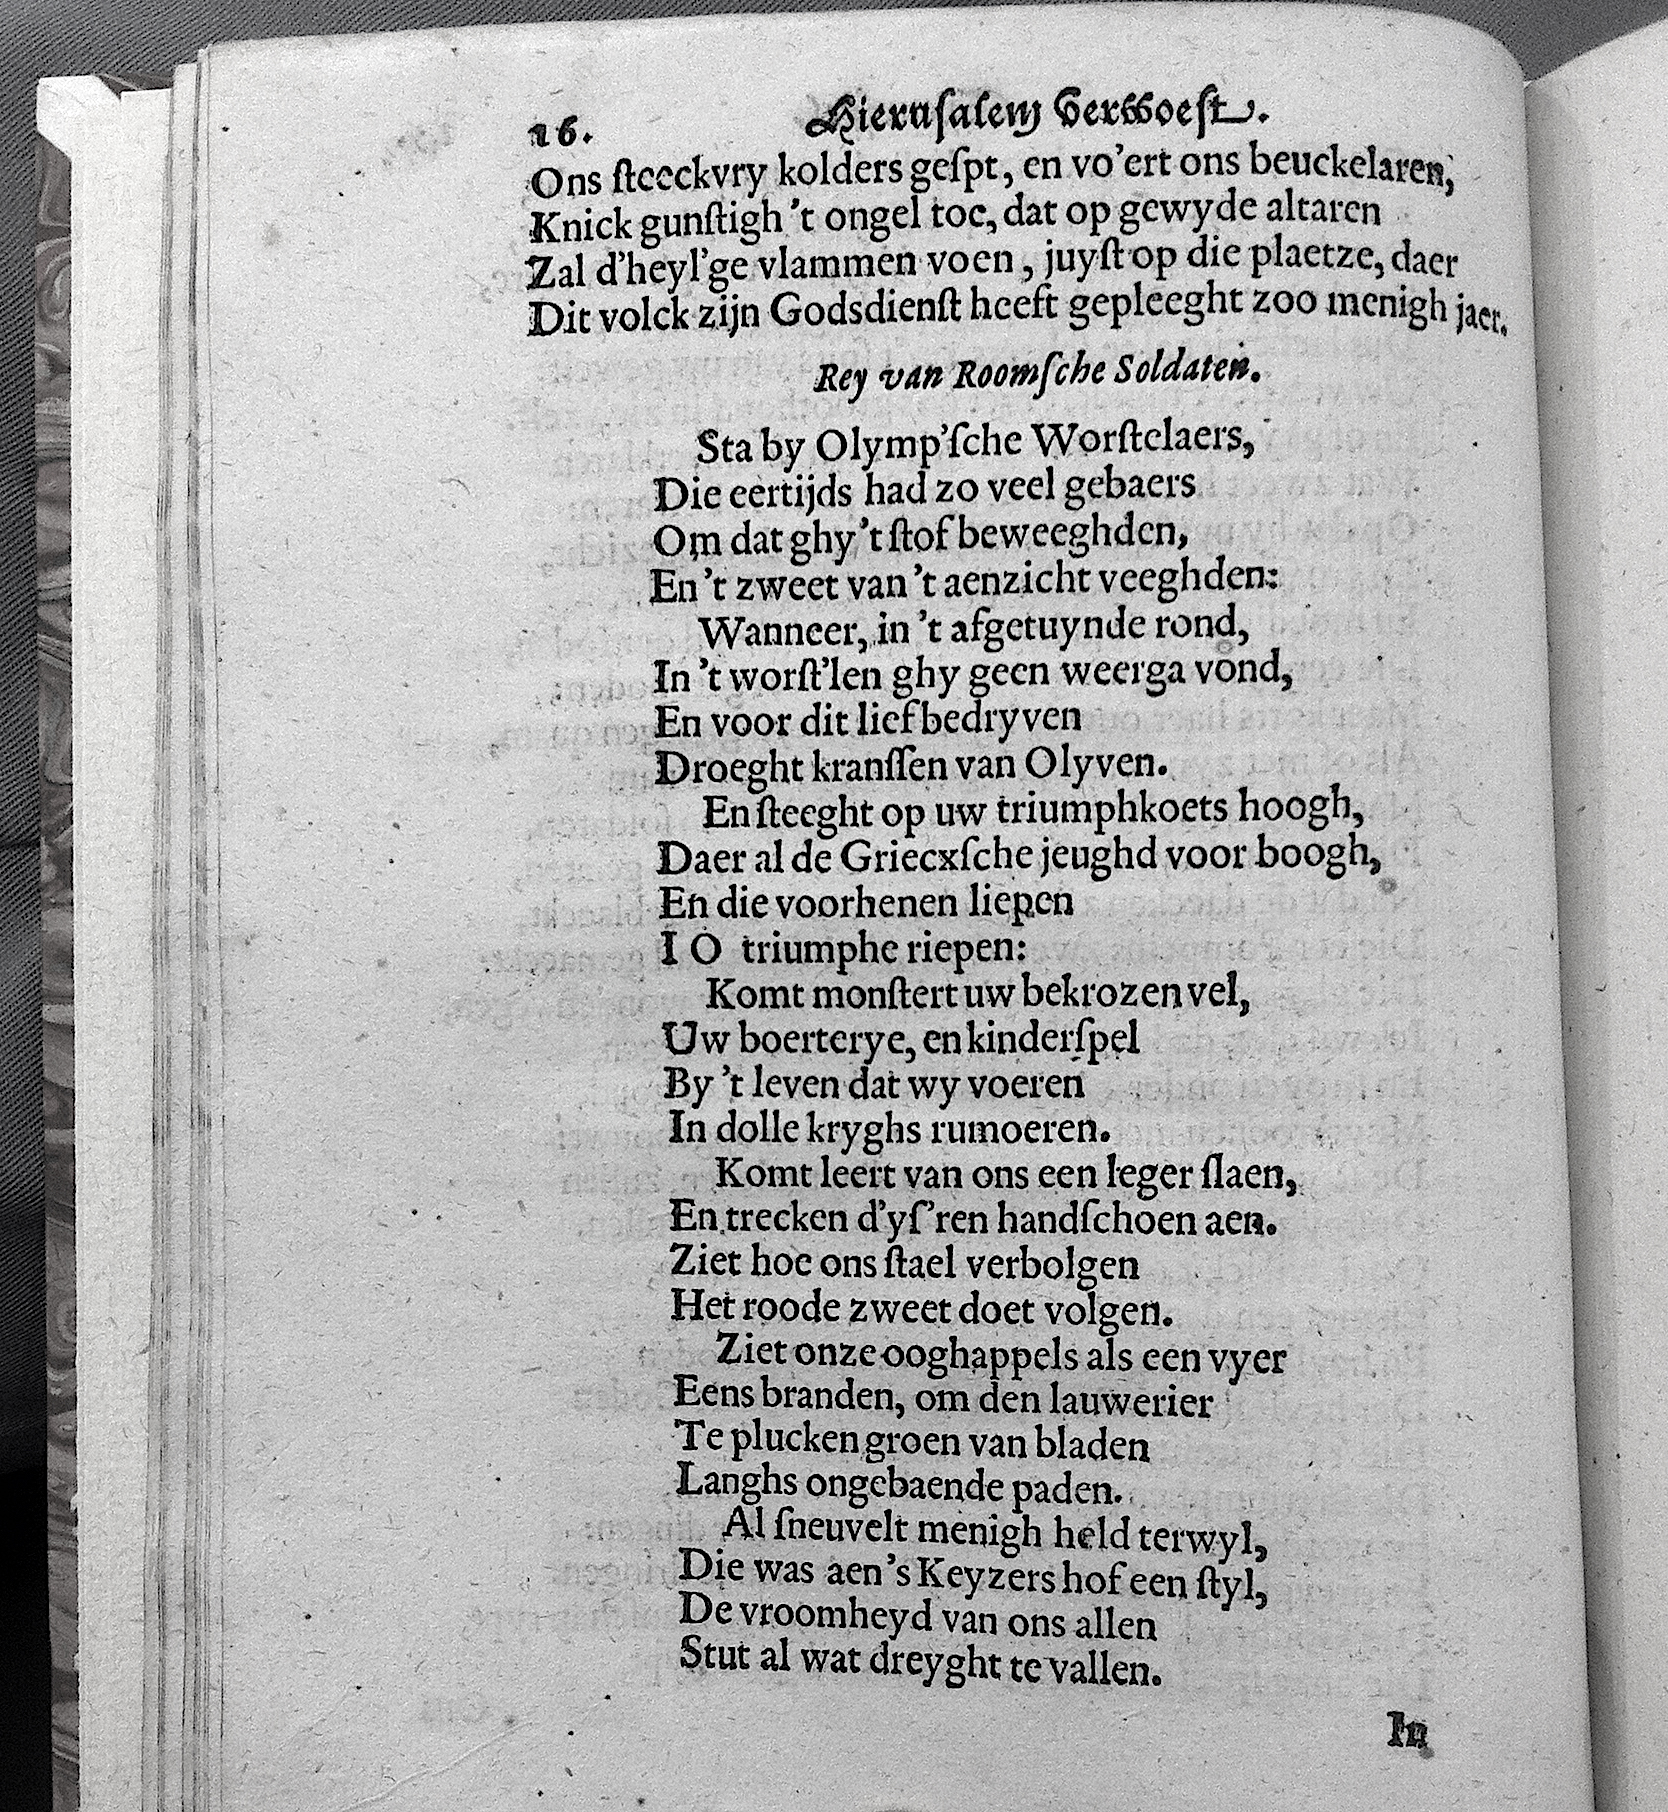 16. Hierusalem Verwoest.
Ons steeckvry kolders gespt, en vo'ert ons beuckelaren,
Knick gunstigh 't ongel toe, dat op gewyde altaren
Zal d'heyl'ge vlammen voen, juyst op die plaetze, daer
Dit volck zijn Godsdienst heeft gepleeght zoo menigh jaer.
Rey van Roomsche Soldaten.
Sta by Olymp'sche Worstelaers,
Die eertijds had zo veel gebaers
Om dat ghy 't stof beweeghden,
En 't zweet van 't aenzicht veeghden:
Wanneer, in 't afgetuynde rond,
In 't worst'len ghy geen weerga vond,
En voor dit lief bedryven
Droeght kranssen van Olyven.
En steeght op uw triumphkoets hoogh,
Daer al de Griecxsche jeughd voor boogh,
En die voorhenen liepen
I O triumphe riepen:
Komt monstert uw bekrozen vel,
Uw boerterye, en kinderspel
By 't leven dat wy voeren
In dolle kryghs rumoeren.
Komt leert van ons een leger slaen,
En trecken d'ys'ren handschoen aen.
Ziet hoe ons stael verbolgen
Het roode zweet doet volgen.
Ziet onze ooghappels als een vyer
Eens branden, om den lauwerier
Te plucken groen van bladen
Langhs ongebaende paden.
Al sneuvelt menigh held terwyl,
Die was aen 's Keyzers hof een styl,
De vroomheyd van ons allen
Stut al wat dreyght te vallen.
In